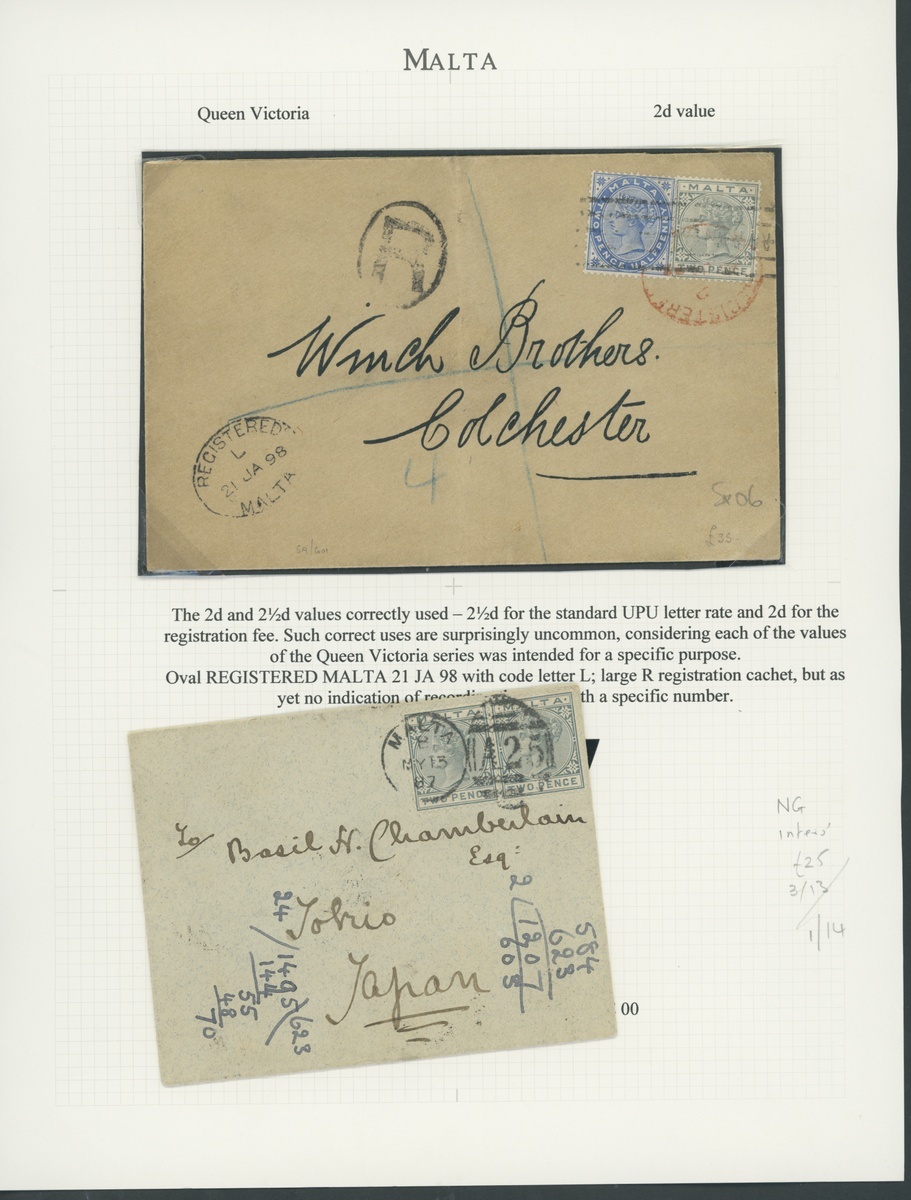 MALTA
Queen Victoria 2d value
MALTA
TWO PENCE HALFPENNY
MALTA
TWO PENCE
R
Winch Brothers.
Colchester
REGISTERED
L
21 JA 98
MALTA
4
5x06
£35
The 2d and 2½d values correctly used – 2½d for the standard UPU letter rate and 2d for the
registration fee. Such correct uses are surprisingly uncommon, considering each of the values
of the Queen Victoria series was intended for a specific purpose.
Oval REGISTERED MALTA 21 JA 98 with code letter L; large R registration cachet, but as
yet no indication of a specific number.
MALTA
MY 13
87
A25
MALTA
TWO PENCE
MALTA
TWO PENCE
To Basil H. Chamberlain
Esqr
Tokio
Japan
584
623
2(1207
603
24/1495/623
144
55
48
70
NG
£25
3/13
1/14
00